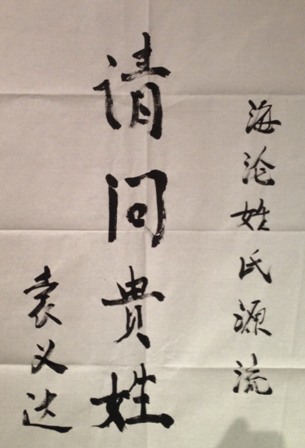 海沦姓氏源流
请问贵姓
袁义达